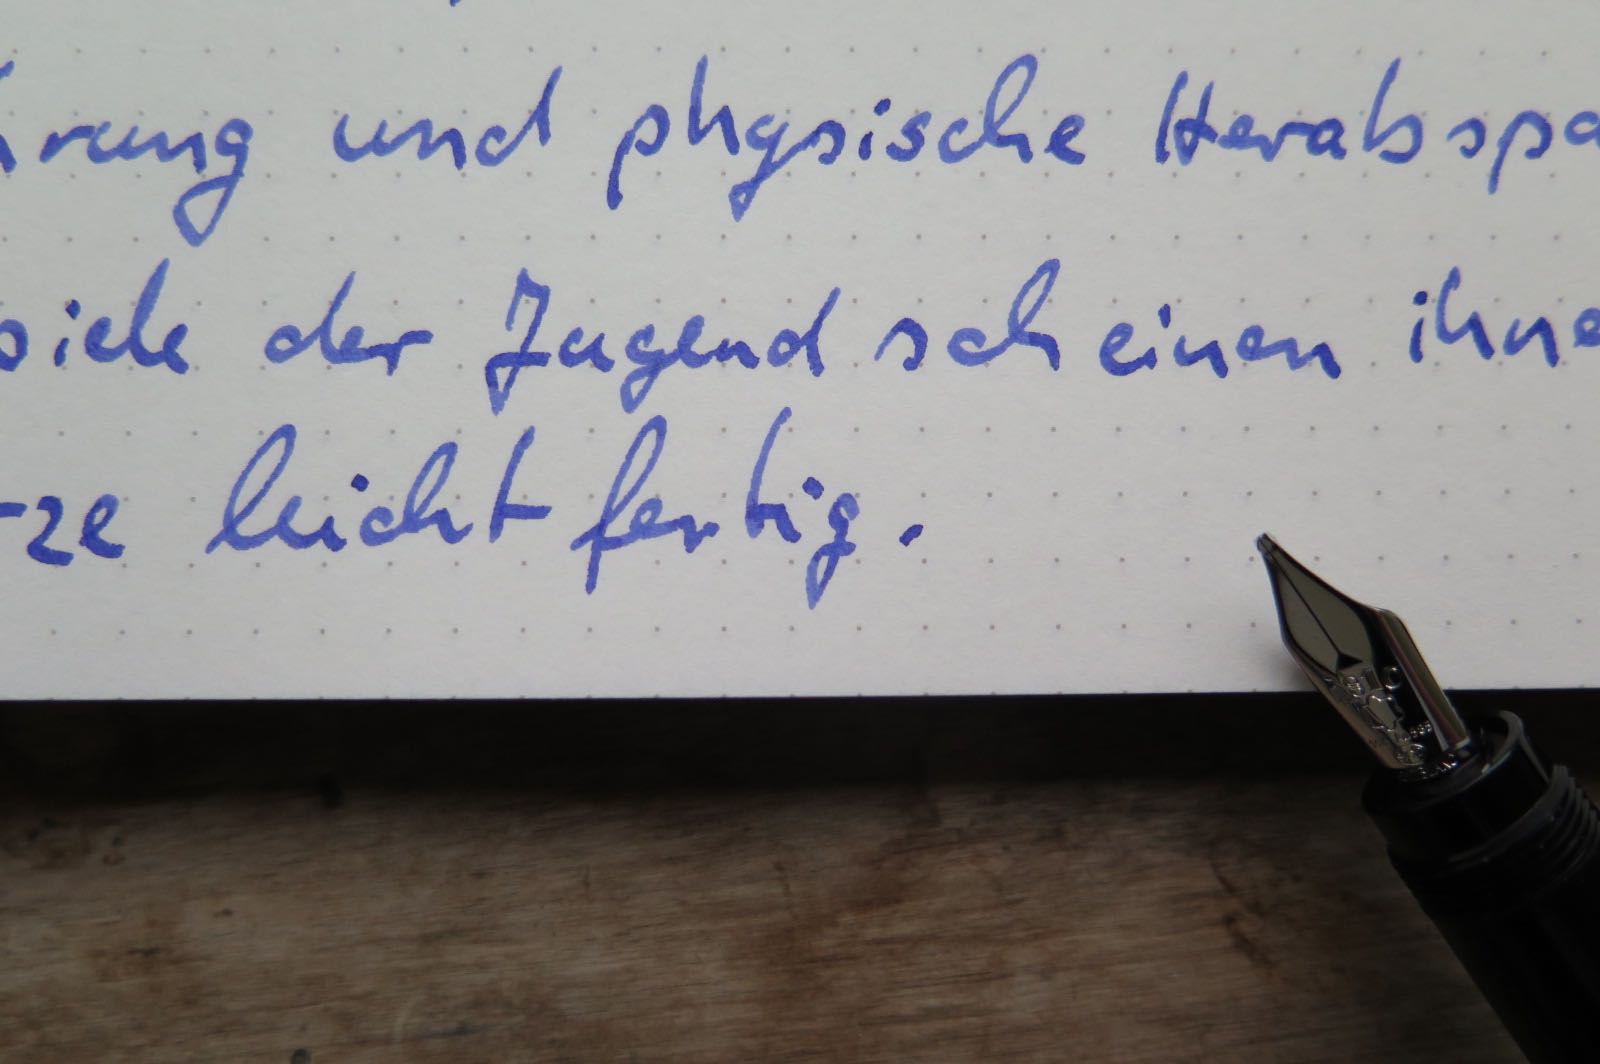 hrung und physische Herabspa
piele der Jugend scheinen ihne
rze leichtfertig.